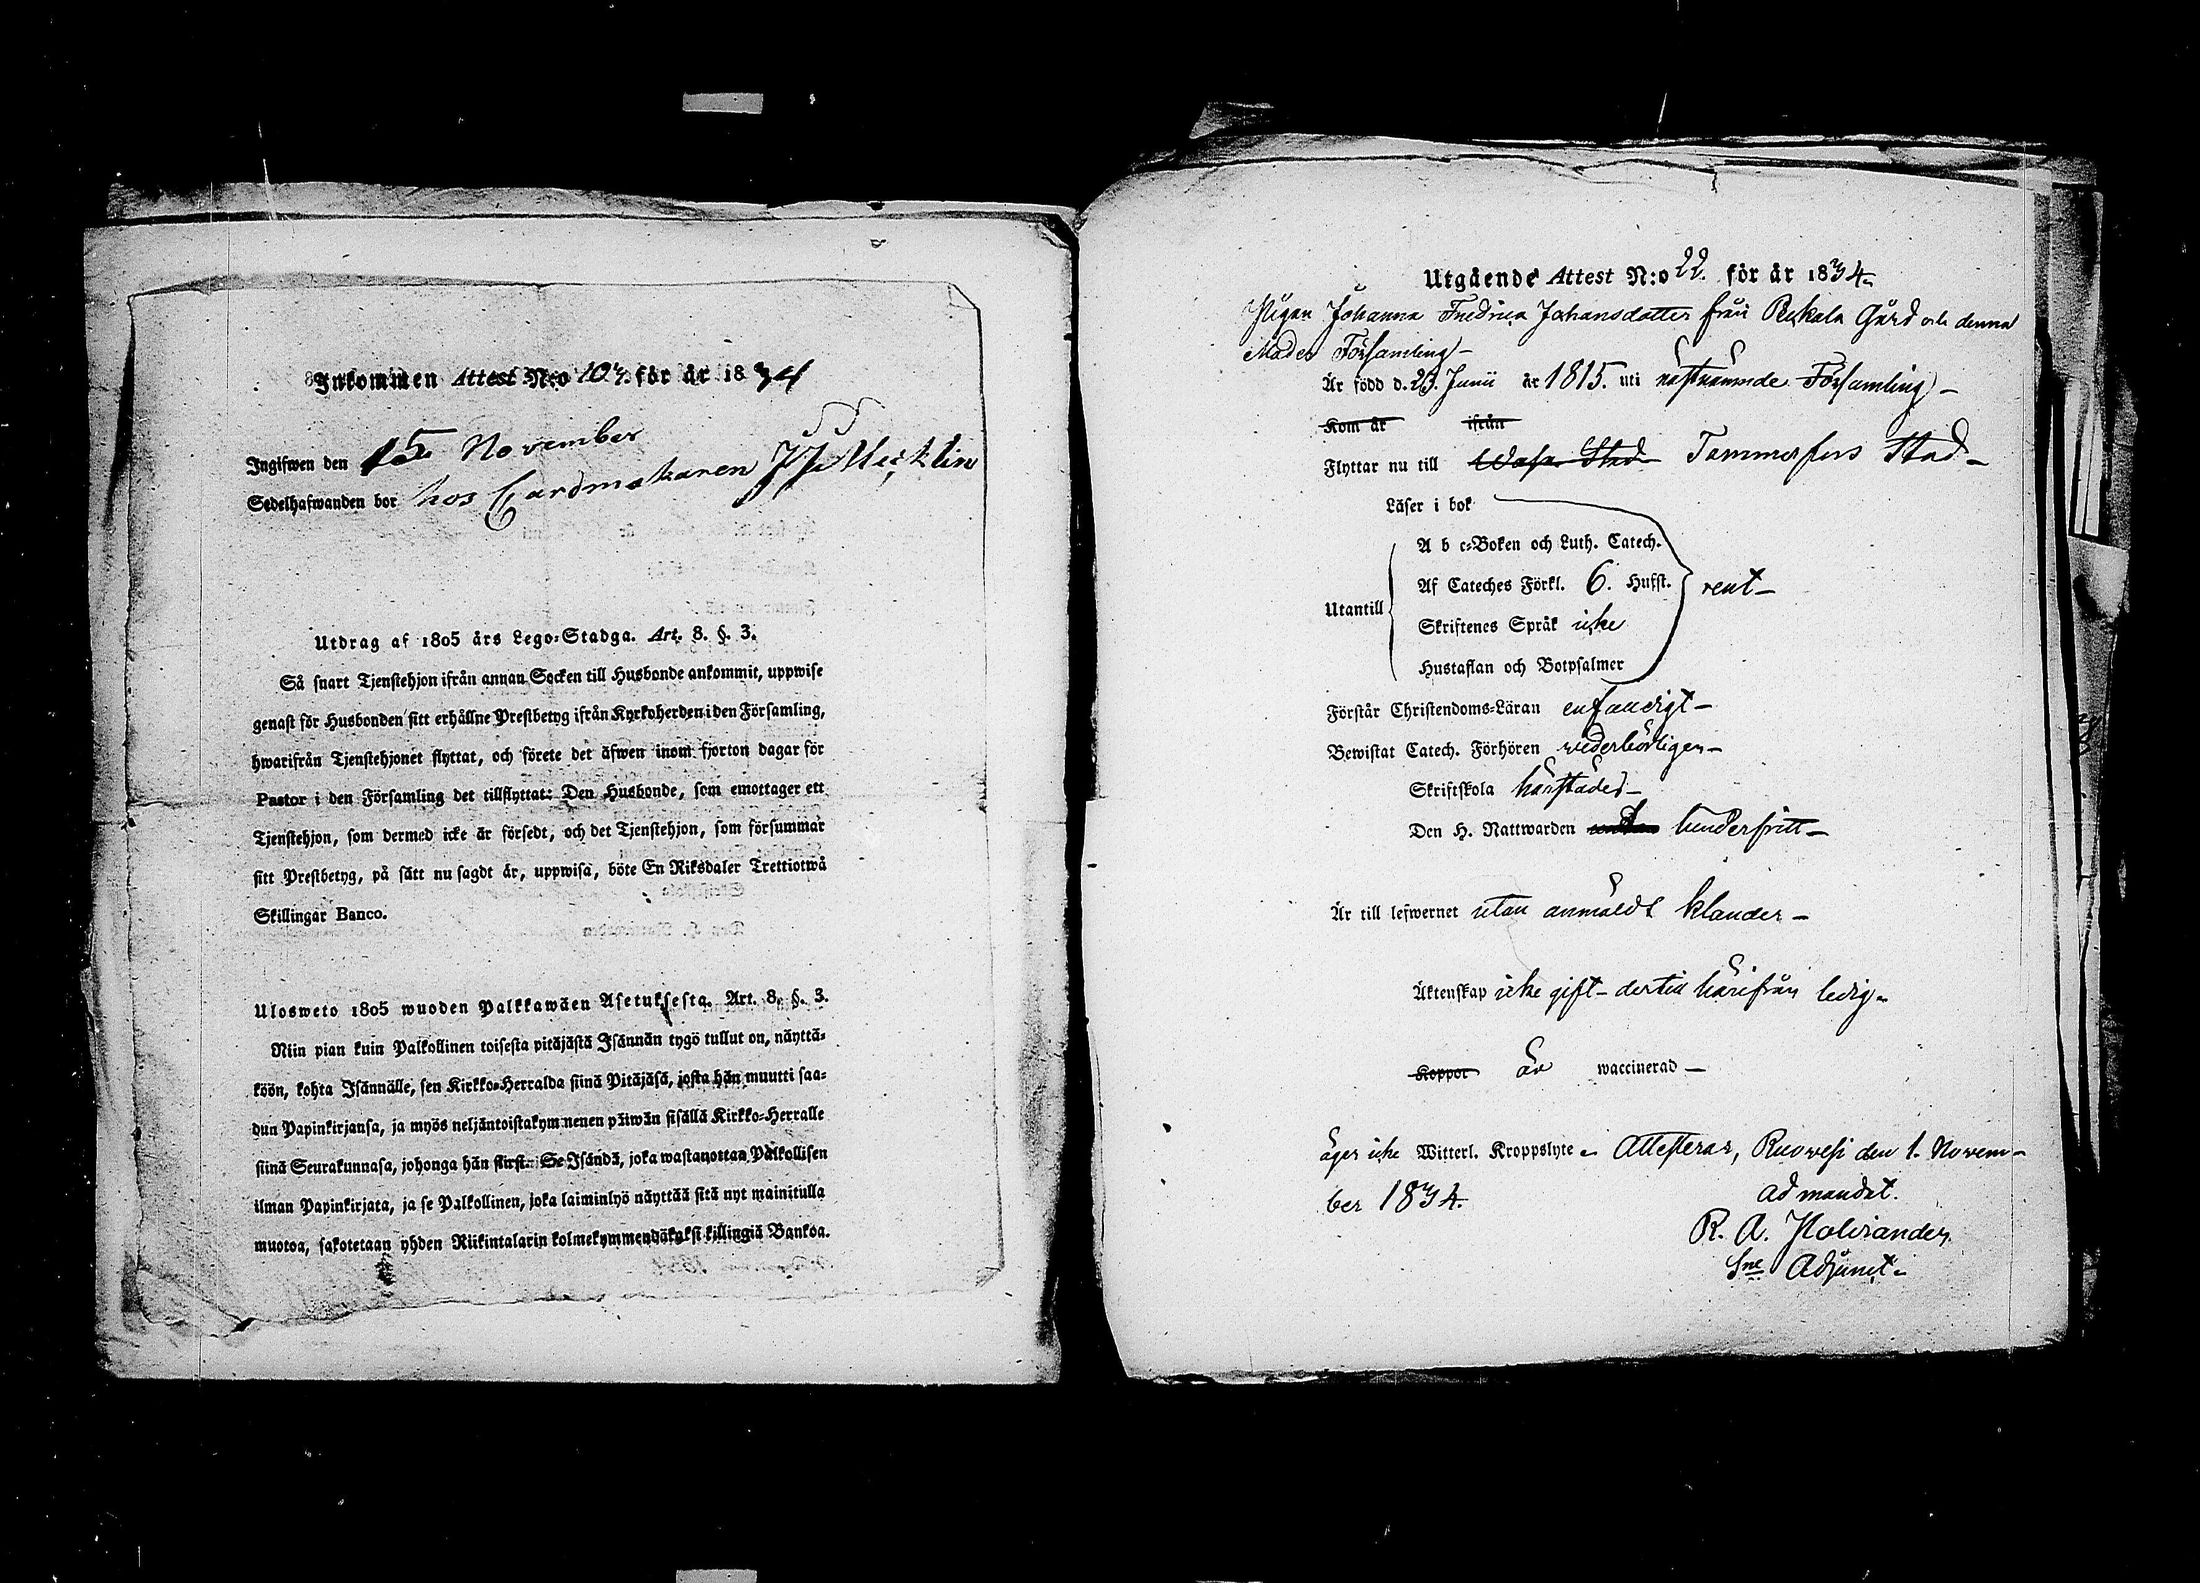 Inkommen Attest N:o 103. för år 1834
Ingifwen den 15 November
Sedelhafwanden bor hos Cardmakaren J J Mecklin
Utdrag af 1805 års Lego-Stadga. Art. 8. §. 3.
Så snart Tjenstehjon ifrån annan Socken till Husbonde ankommit, uppwise
genast för Husbonden sitt erhållne Prestbetyg ifrån Kyrkoherden i den Församling,
hwarifrån Tjenstehjonet flyttat, och förete det äfwen inom fjorton dagar för
Pastor i den Församling det tillflyttat: Den Husbonde, som emottager ett
Tjenstehjon, som dermed icke är försedt, och det Tjenstehjon, som försummar
sitt Prestbetyg, på sätt nu sagdt är, uppwisa, böte En Riksdaler Trettiotwå
Skillingar Banco.
Ulosweto 1805 wuoden Palkkawäen Asetuksesta. Art. 8. §. 3.
Niin pian kuin Palkollinen toisesta pitäjästä Isännän tygö tullut on, näyttä-
köön, kohta Isännälle, sen Kirkko-Herralda siinä Pitäjäsä, josta hän muutti saa-
dun Papinkirjansa, ja myös neljäntoistakymmenen päiwän sisällä Kirkko-Herralle
siinä Seurakunnasa, johonga hän siirst. Se Isändä, joka wastanottan Palkollisen
ilman Papinkirjata, ja se Palkollinen, joka laiminlyö näyttää sitä nyt mainitulla
muotoa, sakotetaan yhden Riikintalarin kolmekymmendäkaksi killingiä Bankoa.
Utgående Attest N:o 22. för år 1834.
Pigan Johanna Fredrica Johansdotter från Pekala Gård och denna
Moder Församling
Är född d. 23. Junii år 1815. uti nästnämnde Församling
Kom år ifrån
Flyttar nu till Wasa Stad Tammerfors Stad
Läser i bok
A b c-Boken och Luth. Catech.
Af Cateches Förkl. 6. Hufst. rent
Utantill
Skriftenes Språk icke
Hustaflan och Botpsalmer
Förstår Christendoms-Läran enfaldigt
Bewistat Catech. Förhören wederbörligen
Skriftskola härstädes
Den H. Nattwarden hinderfritt
Är till lefwernet utan anmäldt klander
Äktenskap icke gift - dertill härifrån ledig
Koppor är waccinerad
äger icke Witterl. Kroppslyte Attesterar, Ruowesi den 1. Novem-
ber 1834.
ad mandat.
R. A.
Sne Adjunct